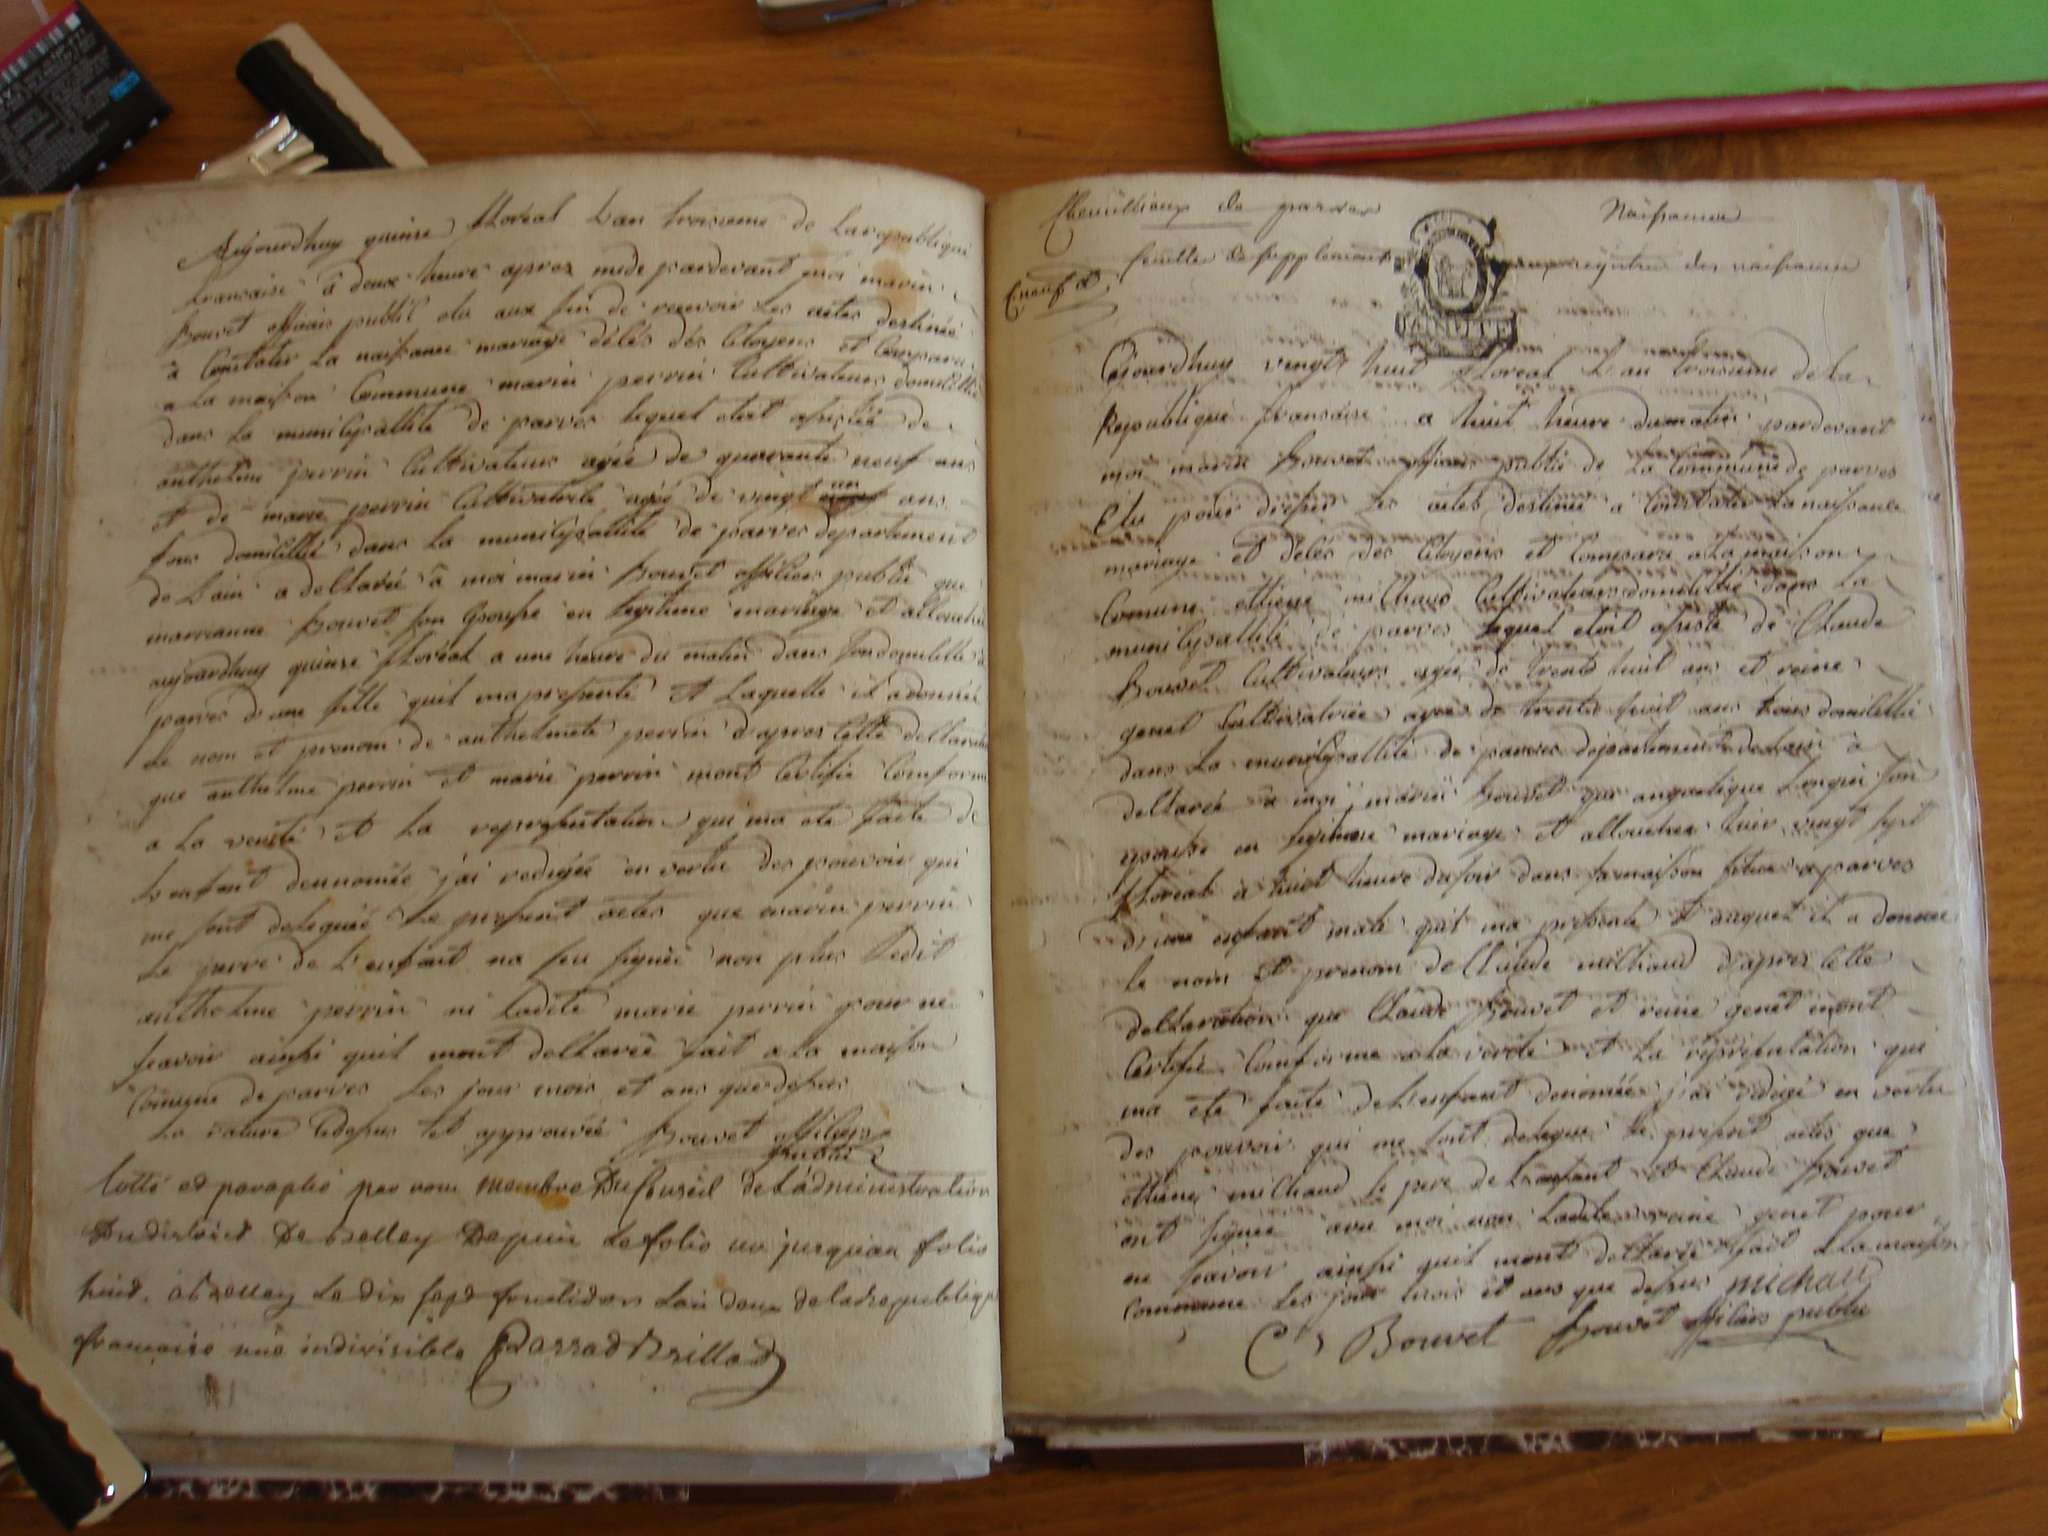 Aujourdhuy quinse floréal Lan troisieme de La republique
francaise à deux heure apres midi pardevant moi marin
Bouvet officié publit elu aux fin de recevoir Les actes destinée
à Constater La naissance mariage délés dés Citoyens et Comparu
a La maison Commune marin perrin Cultivateurs domicillié
dans La municipallité de parves Lequel étoit assistée de
anthelme perrin Cultivateurs agée de quarante neuf ans
et de marie perrin Cultivaterle agée de vingt un ans
tous domicillié dans La municipallité de parves departement
de Lain a dellarée à moi marin Bouvet officiers public que
marrianne Bouvet son Epouse en legitime mariage et allouchée
aujourdhuy quinse floréal a une heure du matin dans son domicille à
parves d'une fille quil ma presenté et Laquelle il a donnée
Le nom et prenom de anthelmete perrin d'apres Cette dellaration
que anthelme perrin et marie perrin mont Certifié Conforme
a La verité et La representation qui ma été faite de
Lenfant dennomée j'ai redigée en vertu des pouvoir qui
me sont delegués Le present actes que marin perrin
Le perre de L'enfant na seu signée non plus Ledit
anthelme perrin ni Ladite marie perrin pour ne
scavoir ainssi quil mont dellarée fait a La maison
Comune de parves Les jour mois et ans que dessus
La rature Cidessus est approuvée Bouvet officiers
public
Cotté et paraphé par nous membre Du Conseil de L'administration
Du district De Belley Depuis Le folio un jusquau folio
huit, à Belley Le dix sept fructidor Lan deux de la republique
française une indivisible
Chemillieux de parves Naissance
feuille de supplement aux registre des naissance
Cejourdhuy vingt huit floreal L'an troisieme de La
Republique francaise a huit heure du matin pardevant
moi marin Bouvet officier public de La Commune de parves
Elu pour dresser Les actes destinée a Constater La naissance
mariage et délés des Citoyens et Comparu a La maison
Comune ettiene milhaud Cultivateurs domicillié dans La
municipallité de parves Lequel etoit assisté de Claude
Bouvet Cultivateurs agée de trente huit ans et reine
genet Cultivatrice agée de trente huit ans tous domicillié
dans La municipallité de parves departement de Lain à
dellarée à moi marin Bouvet que angelique Longin son
epouse en legitime mariage et allouchée hier vingt sept
floreal à huit heure du soir dans sa maison située a parves
d'un enfant male quil ma presenté et auquel il a donnée
le nom et prenom de Claude milhaud d'apres Cette
dellaration que Claude Bouvet et reine genet mont
Certifié Conforme a La verité et La representation que
ma eté faite de L'enfant denomée j'ai redigé en vertu
des pouvoir qui me sont delegué Le present actes que
ettiene milhaud Le pere de L'enfant et Claude Bouvet
ont signée avec moi non Ladite reine genet pour
ne scavoir ainssi quil mont dellarée fait a La maison
Commune Les jour mois et ans que dessus michau
Cd Bouvet Bouvet officiers public